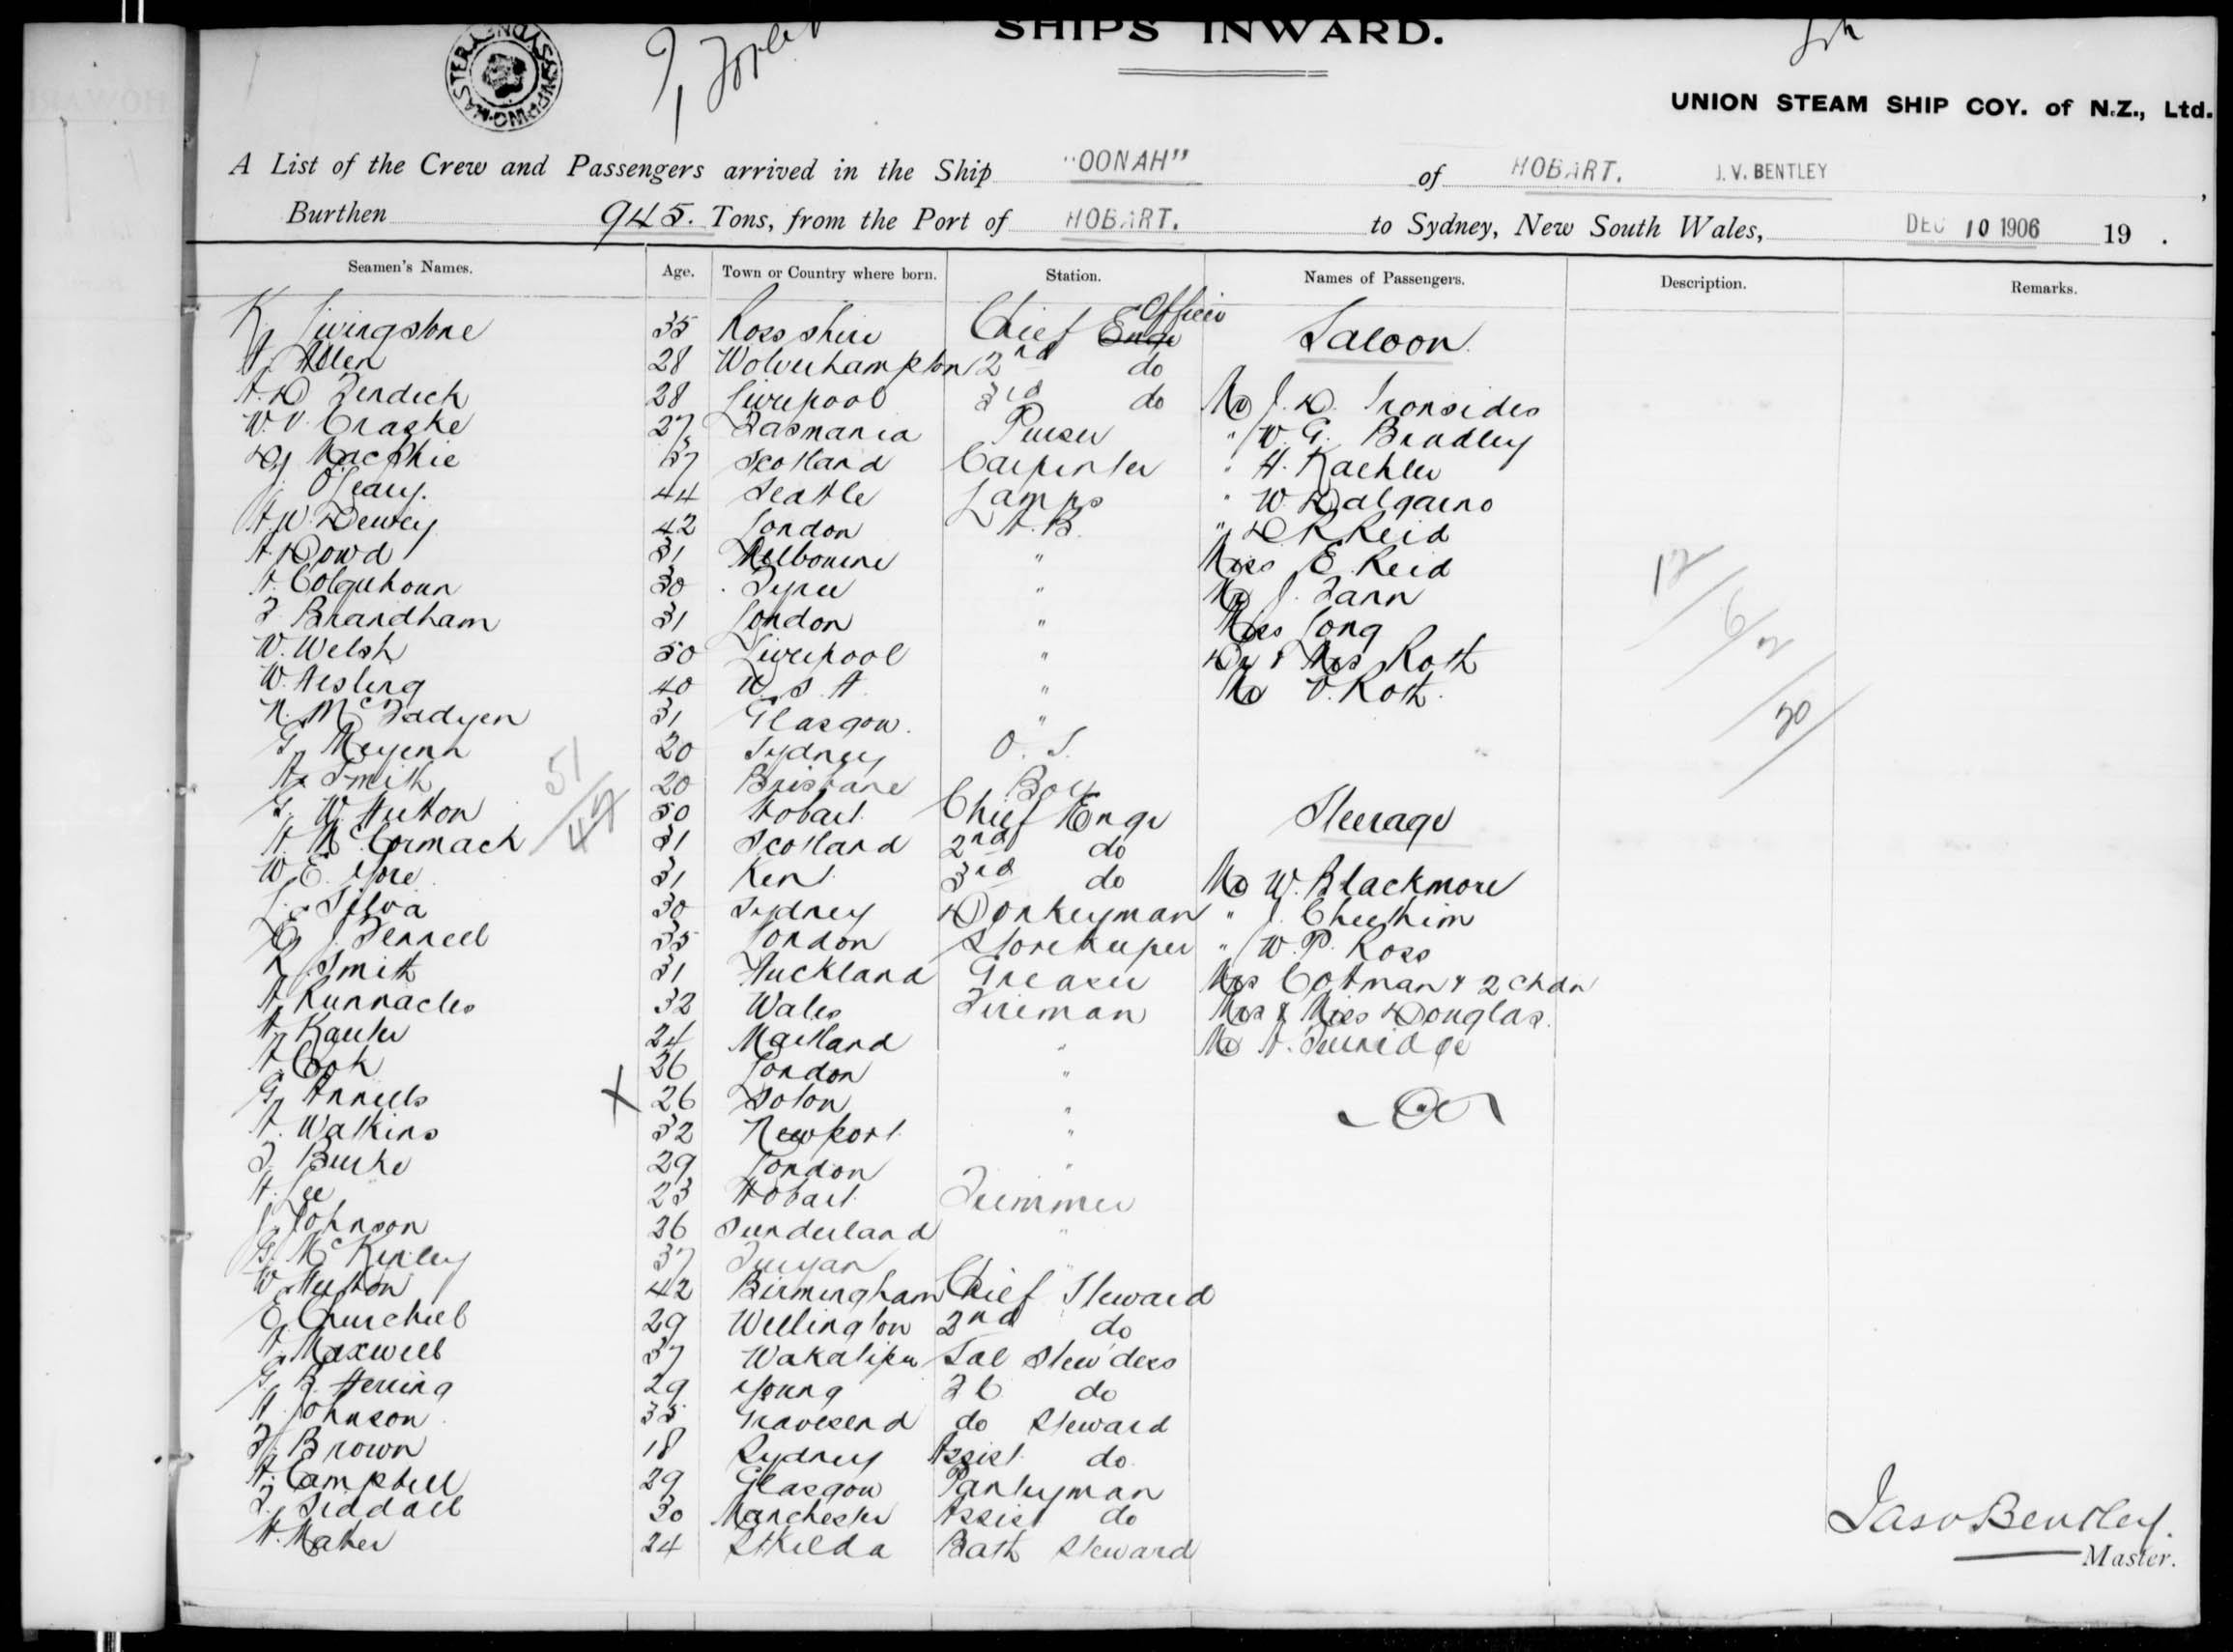 SHIPS INWARD.
UNION STEAM SHIP COY. of N.Z., Ltd.
A List of the Crew and Passengers arrived in the Ship "OONAH" of HOBART. J. V. BENTLEY,
Burthen 945. Tons, from the Port of HOBART. to Sydney, New South Wales, DEC 10 1906 19 .
Seamen's Names. Age. Town or Country where born. Station. Names of Passengers. Description. Remarks.
K. Livingstone 35 Ross shire Chief Engr Officer
Saloon.
A. Allen 28 Wolverhampton 2nd do
28 Liverpool 3rd do Mr J. D. Ironsides
W. V. Craske 27 Tasmania Purser " W. G. Bradley
D. MacPhie 37 Scotland Carpenter " H. Kaehler
J. O'Leary. 44 Seattle Lamps " W. Dalgarno
A. W. Dewey 42 London A. B. " D R Reid
A Dowd 31 Melbourne " Miss E. Reid
A. Colquhoun 30 Tyree " Mr J. Tann
F Brandham 31 London " Miss Long
W. Welsh 50 Liverpool " Dr & Mrs Roth
W. Hesling 40 U. S. A. " Mr V. Roth.
N. McFadyen 31 Glasgow. "
G. 20 Sydney O. S.
A. Smith 20 Brisbane Boy
G. W. Hutton 50 Hobart. Chief Engr
Steerage
A. McCormack 31 Scotland 2nd do
W. E. Yore 31 Kent 3rd do Mr W. Blackmore
L. Silva 30 Sydney Donkeyman " J. Cheethim
E. J. Fennell 35 London Storekeeper " W. P. Ross
R. Smith 31 Auckland Greaser Mrs Cotman & 2 chdn
A. Runnacles 32 Wales Fireman Mrs & Miss Douglas.
24 Maitland " Mr A.
A. Cook 26 London "
G. Annells X 26 Soton "
A. Watkins 32 Newport. "
J. Burke 29 London "
H. Lee 23 Hobart. Trimmer
J. Johnson 26 Sunderland "
G. McKinley 37 "
W. Hutton 42 Birmingham Chief Steward
E. Churchill 29 Wellington 2nd do
A. Maxwell 37 Wakatipu Sal Stew'dess
G. B. Herring 29 Young F C do
A. Johnson 35 Gravesend do Steward
F. Brown 18 Sydney Assist. do
A. Campbell 29 Glasgow Pantryman
F. Siddall 30 Manchester Assist do
H. Maher 24 St Kilda Bath Steward
51
12
6
2
20
Jas V Bentley.
Master.